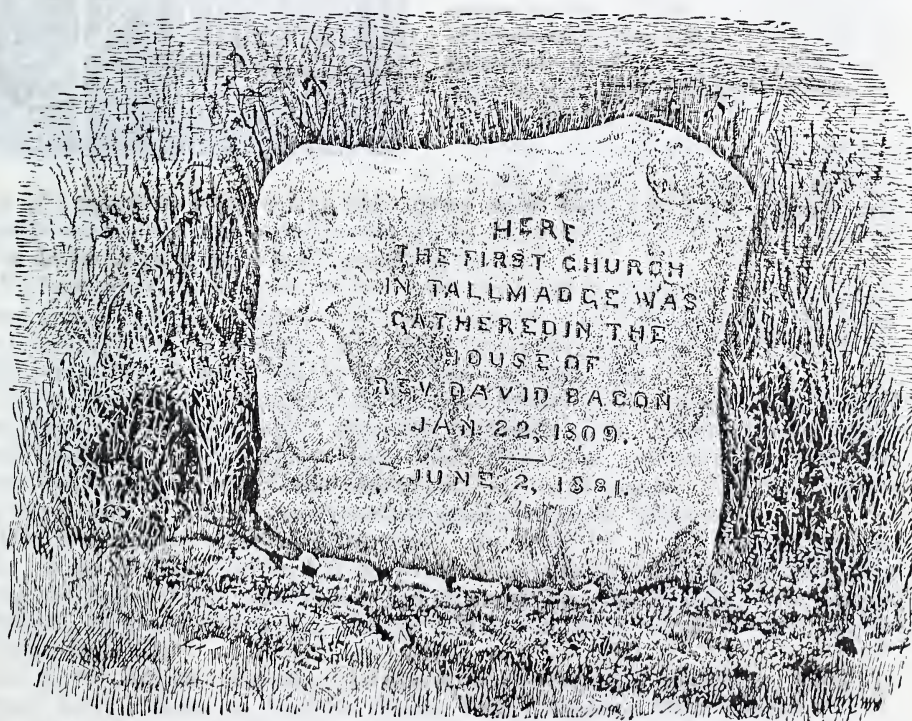 HERE
THE FIRST CHURCH
IN TALLMADGE WAS
GATHERED IN THE
HOUSE OF
REV. DAVID BACON
JAN. 22, 1809.
JUNE 2, 1881.